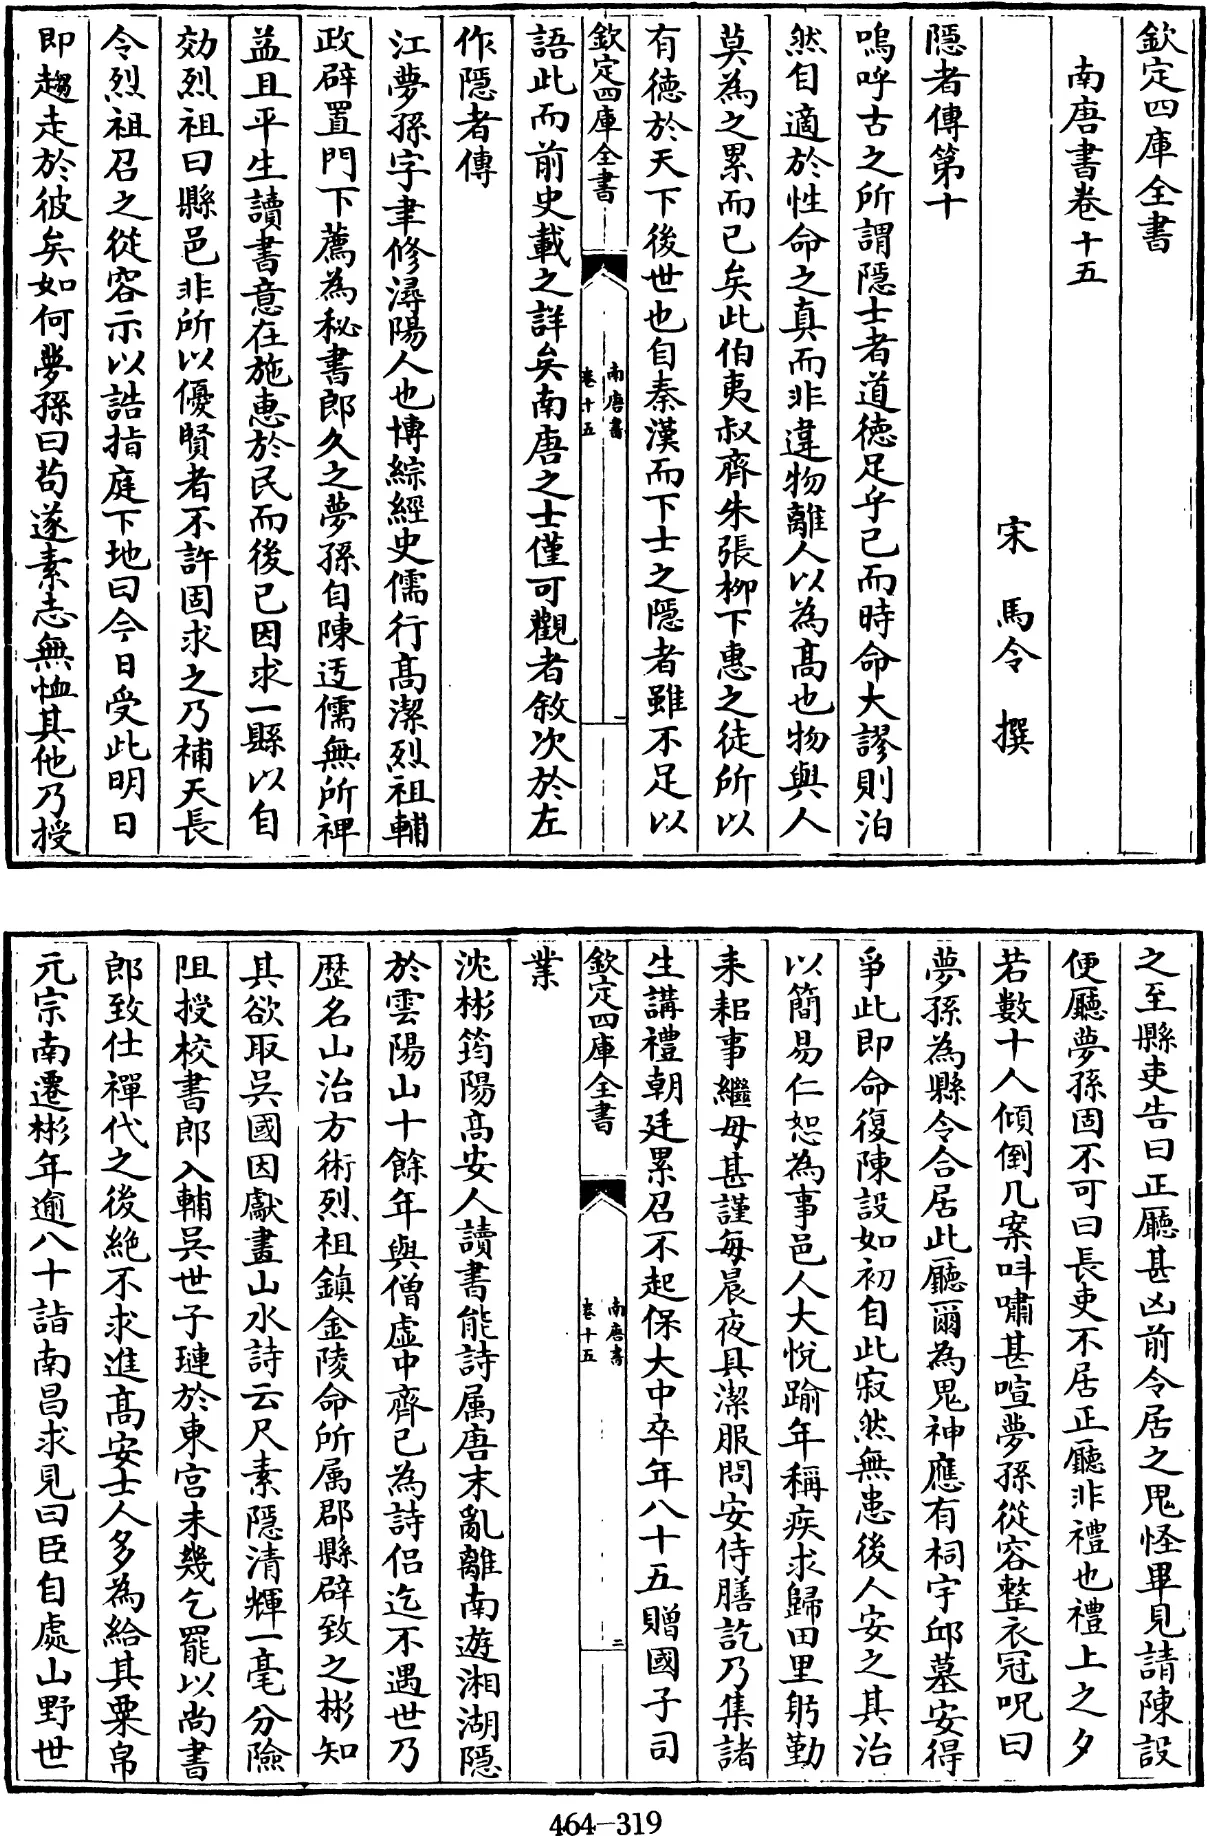 欽定四庫全書
南唐書卷十五
宋 馬令 撰
隱者傳第十
嗚呼古之所謂隱士者道徳足乎已而時命大謬則泊
然自適於性命之真而非違物離人以為髙也物與人
莫為之累而已矣此伯夷叔齊朱張栁下惠之徒所以
有徳於天下後世也自秦漢而下士之隱者雖不足以
欽定四庫全書
南唐書
卷十五
一
語此而前史載之詳矣南唐之士僅可觀者敘次於左
作隱者傳
江夢孫字聿修潯陽人也博綜經史儒行髙潔烈祖輔
政辟置門下薦為秘書郎久之夢孫自陳迂儒無所裨
益且平生讀書意在施惠於民而後已因求一縣以自
効烈祖曰縣邑非所以優賢者不許固求之乃補天長
令烈祖召之從容示以誥指庭下地曰今日受此明日
即趨走於彼矣如何夢孫曰茍遂素志無恤其他乃授
之至縣吏告曰正廳甚凶前令居之鬼怪畢見請陳設
便廳夢孫固不可曰長吏不居正廳非禮也禮上之夕
若數十人傾倒几案呌嘯甚喧夢孫從容整衣冠呪曰
夢孫為縣令合居此廳爾為鬼神應有祠宇邱墓安得
爭此即命復陳設如初自此寂然無患後人安之其治
以簡易仁恕為事邑人大悅踰年稱疾求歸田里躬勤
耒耜事繼母甚謹每晨夜具潔服問安侍膳訖乃集諸
生講禮朝廷累召不起保大中卒年八十五贈國子司
欽定四庫全書
南唐書
卷十五
二
業
沈彬筠陽髙安人讀書能詩属唐末亂離南遊湘湖隱
於雲陽山十餘年與僧虛中齊已為詩侶迄不遇世乃
歴名山治方術烈祖鎮金陵命所属郡縣辟致之彬知
其欲取吳國因獻畫山水詩云尺素隱清輝一毫分險
阻授校書郎入輔吳世子璉於東宮未幾乞罷以尚書
郎致仕禪代之後絶不求進髙安士人多為給其粟帛
元宗南遷彬年逾八十詣南昌求見曰臣自處山野世
464-319